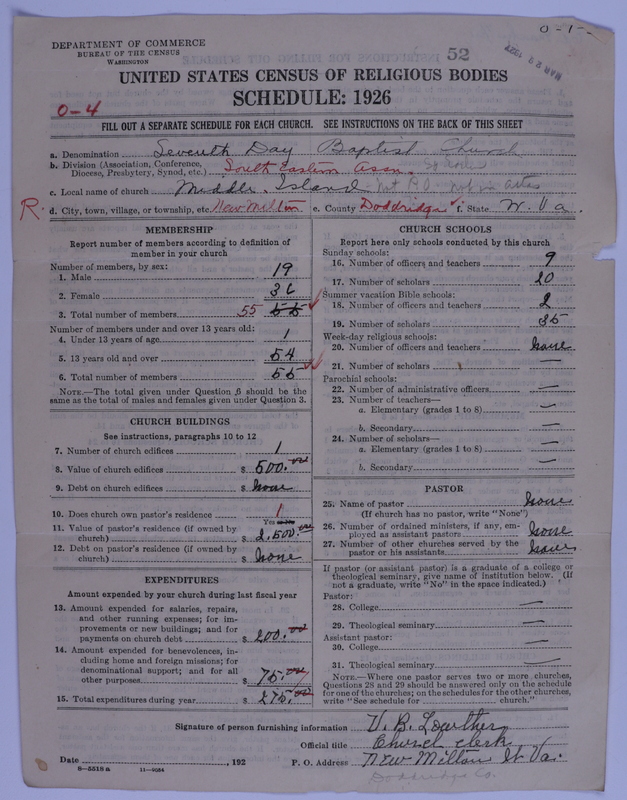 O-1-
DEPARTMENT OF COMMERCE
BUREAU OF THE CENSUS
WASHINGTON
52
MAR 29 1927
UNITED STATES CENSUS OF RELIGIOUS BODIES
SCHEDULE: 1926
O-4
FILL OUT A SEPARATE SCHEDULE FOR EACH CHURCH. SEE INSTRUCTIONS ON THE BACK OF THIS SHEET
a. Denomination Seventh Day Baptist Church
b. Division (Association, Conference, Diocese, Presbytery, Synod, etc.) South Eastern Assn.
c. Local name of church Middle Island not P.O. not in atlas
R. d. City, town, village, or township, etc. New Milton e. County Doddridge f. State W. Va.
MEMBERSHIP
Report number of members according to definition of
member in your church
Number of members, by sex:
1. Male 19
2. Female 36
3. Total number of members 55 55
Number of members under and over 13 years old:
4. Under 13 years of age 1
5. 13 years old and over 54
6. Total number of members 55
NOTE.—The total given under Question 6 should be the
same as the total of males and females given under Question 3.
CHURCH BUILDINGS
See instructions, paragraphs 10 to 12
7. Number of church edifices 1
8. Value of church edifices $ 500.00
9. Debt on church edifices $ none
10. Does church own pastor's residence 1
Yes or No
11. Value of pastor's residence (if owned by
church) $ 2,500.00
12. Debt on pastor's residence (if owned by
church) $ none
EXPENDITURES
Amount expended by your church during last fiscal year
13. Amount expended for salaries, repairs,
and other running expenses; for im-
provements or new buildings; and for
payments on church debt $ 200.00
14. Amount expended for benevolences, in-
cluding home and foreign missions; for
denominational support; and for all
other purposes $ 75.00
15. Total expenditures during year $ 275.00
CHURCH SCHOOLS
Report here only schools conducted by this church
Sunday schools:
16. Number of officers and teachers 9
17. Number of scholars 20
Summer vacation Bible schools:
18. Number of officers and teachers 2
19. Number of scholars 35
Week-day religious schools:
20. Number of officers and teachers none
21. Number of scholars —
Parochial schools:
22. Number of administrative officers —
23. Number of teachers—
a. Elementary (grades 1 to 8) —
b. Secondary —
24. Number of scholars—
a. Elementary (grades 1 to 8) —
b. Secondary —
PASTOR
25. Name of pastor none
(If church has no pastor, write "None")
26. Number of ordained ministers, if any, em-
ployed as assistant pastors none
27. Number of other churches served by the
pastor or his assistants none
If pastor (or assistant pastor) is a graduate of a college or
theological seminary, give name of institution below. (If
not a graduate, write "No" in the space indicated.)
Pastor:
28. College —
29. Theological seminary —
Assistant pastor:
30. College —
31. Theological seminary —
NOTE.—Where one pastor serves two or more churches,
Questions 28 and 29 should be answered only on the schedule
for one of the churches; on the schedules for the other churches,
write "See schedule for church."
Signature of person furnishing information U. B. Lowther
Official title Church clerk
Date , 192 P. O. Address New Milton W. Va.
8—5518a 11—9554 Doddridge Co.